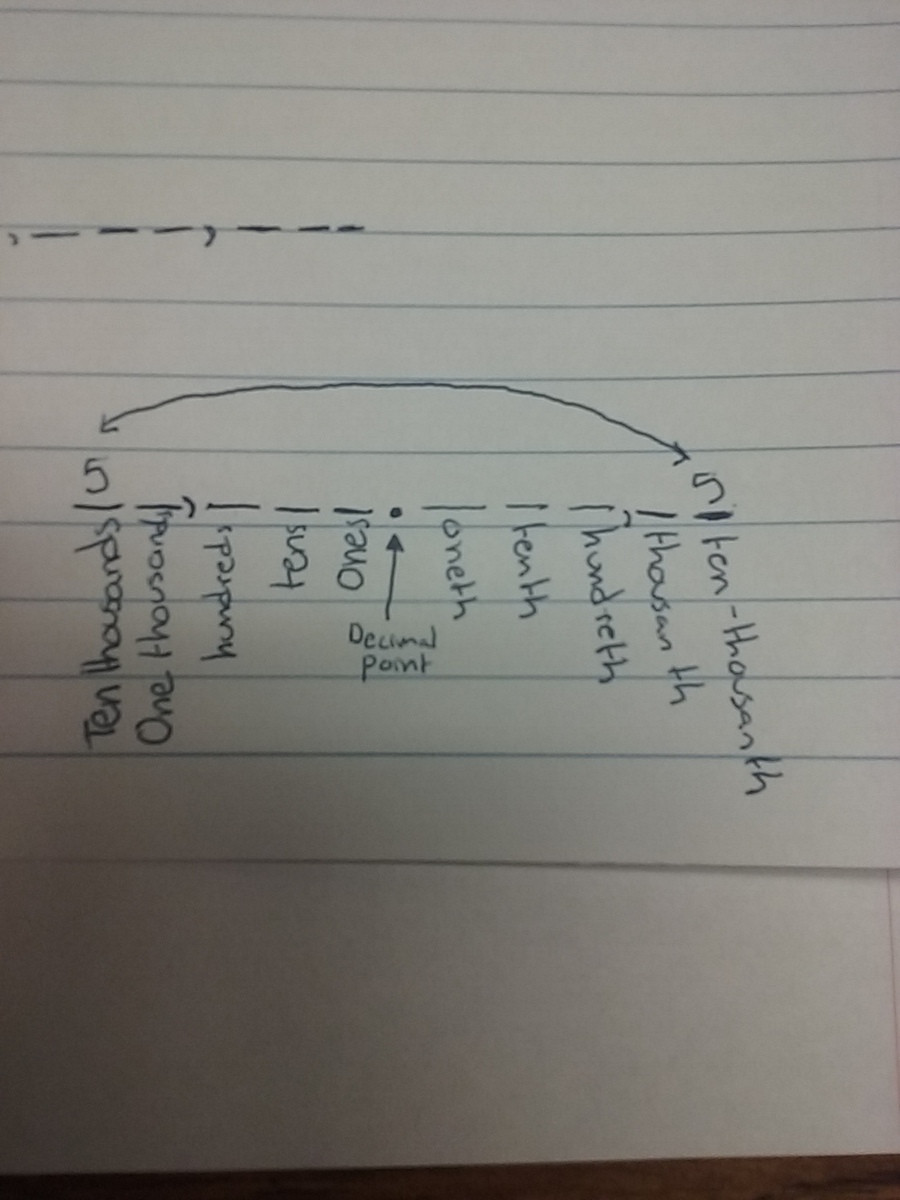 , _ _ _ , _ _ _
5 5
_ _ , _ _ _ . _ _ _ , _ _
Ten thousands
One thousands
hundreds
tens
ones
Decimal
point
oneth
tenth
hundreth
thousanth
ten-thousanth